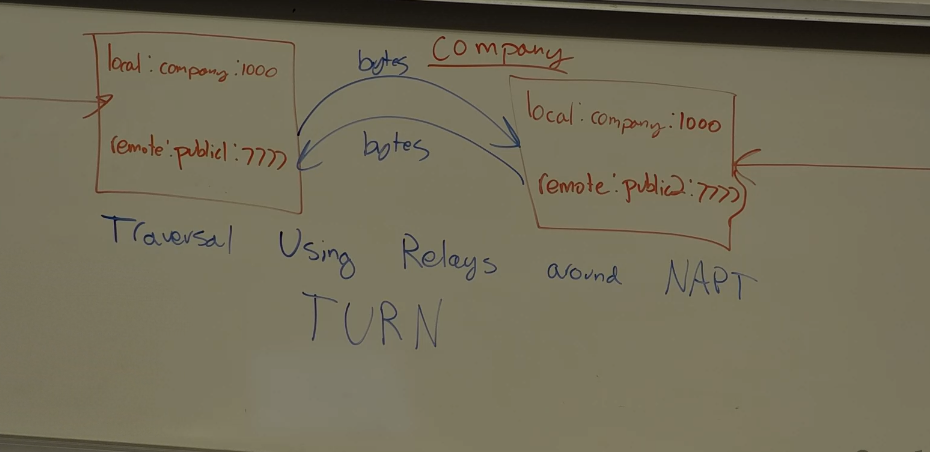 Company
local: company:1000
remote: public1:7777
bytes
bytes
local: company:1000
remote: public2:7777
Traversal Using Relays around NAPT
TURN